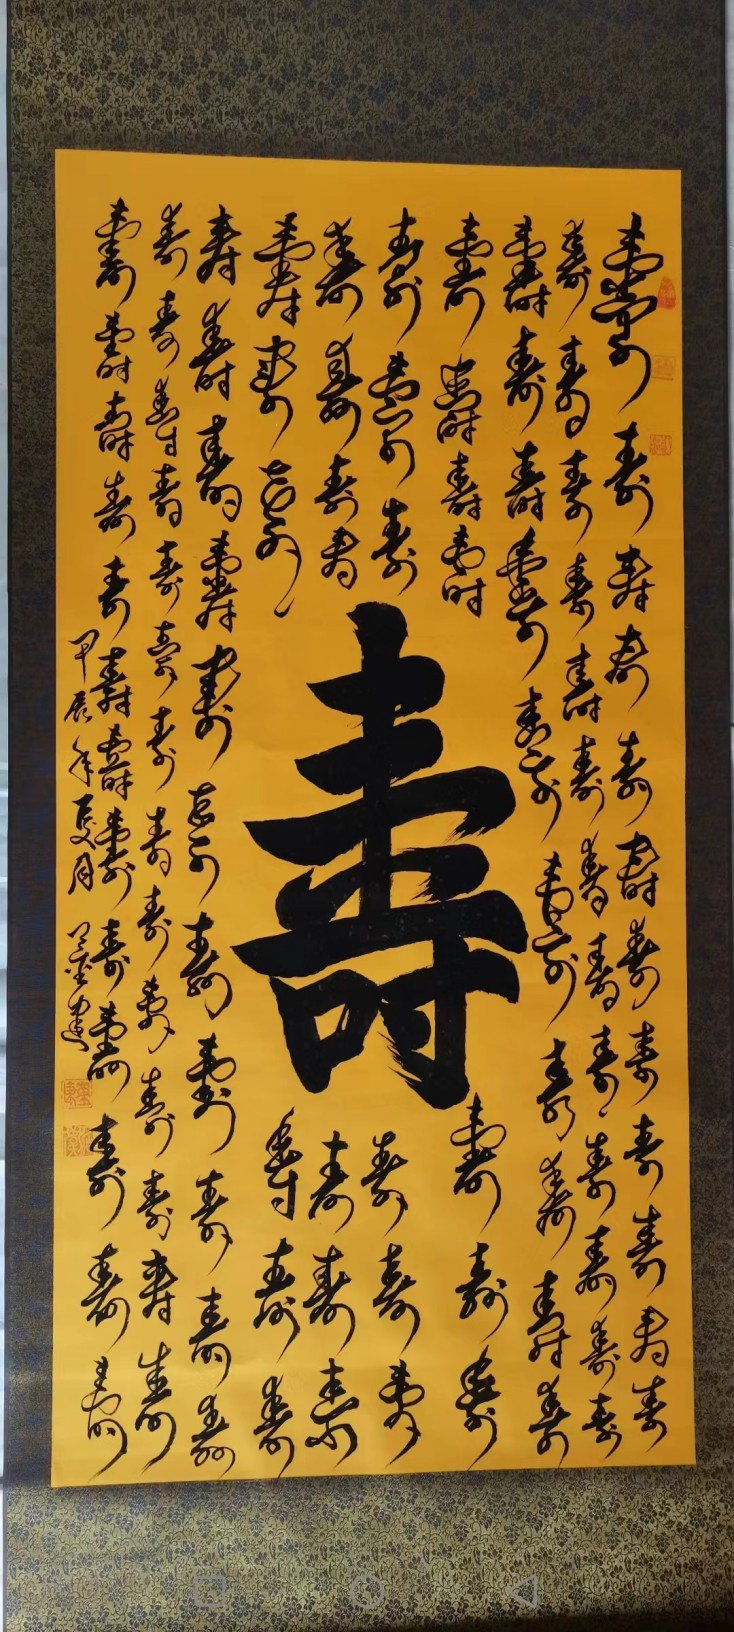 壽壽壽壽壽壽壽壽壽壽壽壽
壽壽壽壽壽壽壽壽壽壽壽壽壽
壽壽壽壽壽壽壽壽壽壽
壽壽壽壽
壽壽壽
壽壽壽壽
壽壽壽
壽
壽壽壽
壽壽壽
壽壽壽
壽壽壽
壽壽壽壽壽壽壽壽壽壽壽
壽壽壽壽壽壽壽壽壽壽壽壽壽壽
壽壽壽壽壽壽壽壽壽壽壽壽壽
甲辰年夏月